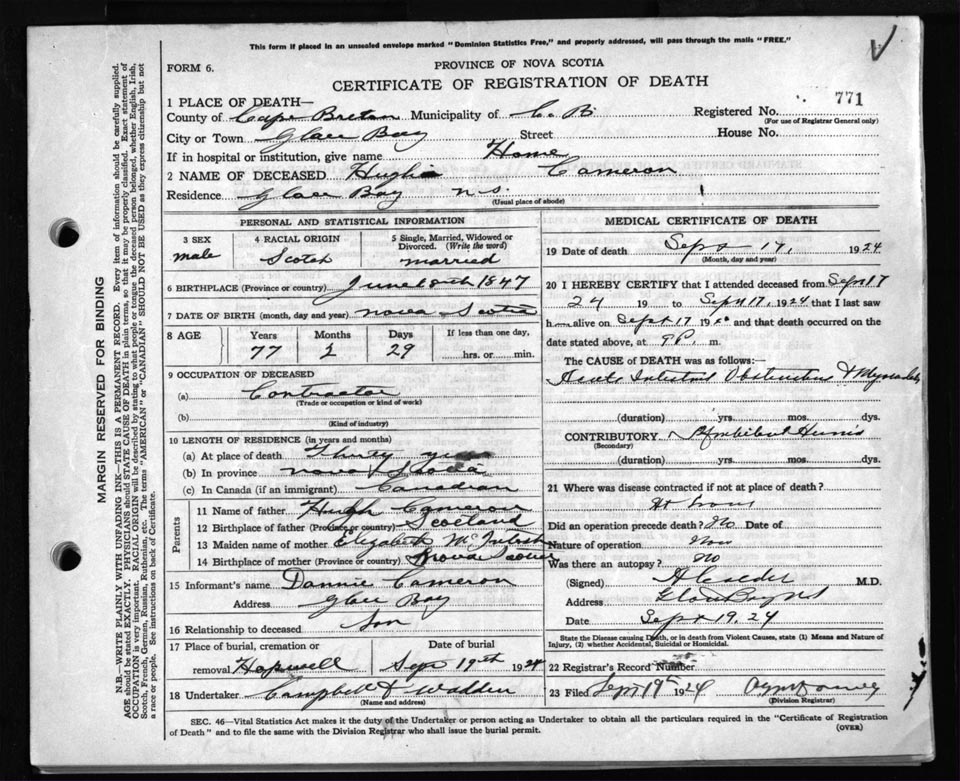 This form if placed in an unsealed envelope marked "Dominion Statistics Free," and properly addressed, will pass through the mails "FREE."
FORM 6.
PROVINCE OF NOVA SCOTIA
CERTIFICATE OF REGISTRATION OF DEATH
771
1 PLACE OF DEATH—
County of Cape Breton Municipality of C. B. Registered No.
(For use of Registrar General only)
City or Town Glace Bay Street House No.
If in hospital or institution, give name Home
2 NAME OF DECEASED Hughie Cameron
Residence Glace Bay N.S.
(Usual place of abode)
PERSONAL AND STATISTICAL INFORMATION
3 SEX 4 RACIAL ORIGIN 5 Single, Married, Widowed or Divorced. (Write the word)
male Scotch married
6 BIRTHPLACE (Province or country) June 18th 1847
7 DATE OF BIRTH (month, day and year) Nova Scotia
8 AGE Years Months Days If less than one day,
77 2 29 hrs. or min.
9 OCCUPATION OF DECEASED
(a) Contractor
(Trade or occupation or kind of work)
(b)
(Kind of industry)
10 LENGTH OF RESIDENCE (in years and months)
(a) At place of death Thirty years
(b) In province Nova Scotia
(c) In Canada (if an immigrant) Canadian
Parents
11 Name of father Hugh Cameron
12 Birthplace of father (Province or country) Scotland
13 Maiden name of mother Elizabeth McIntosh
14 Birthplace of mother (Province or country) Nova Scotia
15 Informant's name Dannie Cameron
Address Glace Bay
16 Relationship to deceased Son
17 Place of burial, cremation or Date of burial
removal Hopewell Sep 19th 1924
18 Undertaker Campbell & Wadden
(Name and address)
MEDICAL CERTIFICATE OF DEATH
19 Date of death Sept 17, 1924
(Month, day and year)
20 I HEREBY CERTIFY that I attended deceased from Sept 17
24 19 to Sept 17, 1924 that I last saw
h alive on Sept 17 19 and that death occurred on
date stated above, at 9 P. m.
The CAUSE of DEATH was as follows:
Acute Intestinal Obstruction &
(duration) yrs. mos. dys.
CONTRIBUTORY Umbilical Hernia
(Secondary)
(duration) yrs. mos. dys.
21 Where was disease contracted if not at place of death?
At home
Did an operation precede death? No Date of
Nature of operation None
Was there an autopsy? No
(Signed) M.D.
Address Glace Bay N.S
Date Sept 19. 24
State the Disease causing Death, or in death from Violent Causes, state (1) Means and Nature of Injury, (2) whether Accidental, Suicidal or Homicidal.
22 Registrar's Record Number
23 Filed Sept 19th 1924
(Division Registrar)
SEC. 46—Vital Statistics Act makes it the duty of the Undertaker or person acting as Undertaker to obtain all the particulars required in the "Certificate of Registration
of Death" and to file the same with the Division Registrar who shall issue the burial permit.
(OVER)
MARGIN RESERVED FOR BINDING
N.B.—WRITE PLAINLY WITH UNFADING INK—THIS IS A PERMANENT RECORD. Every item of information should be carefully supplied.
AGE should be stated EXACTLY. PHYSICIANS should STATE CAUSE OF DEATH in plain terms, so that it may be properly classified. Exact statement of
OCCUPATION is very important. RACIAL ORIGIN will be described by stating to what people or tongue the deceased person belonged, whether English, Irish,
Scotch, French, German, Russian, Ruthenian, etc. The terms "AMERICAN" or "CANADIAN" SHOULD NOT BE USED as they express citizenship but not
a race or people. See instructions on back of Certificate.